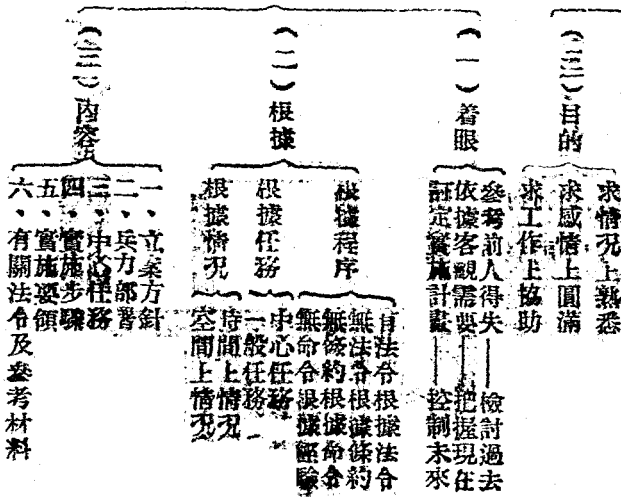 求情況上熟悉
（三）目的
求感情上圓滿
求工作上協助
（一）着眼
參考前人得失——檢討過去
依據客觀需要——把握現在
訂定實施計畫——控制未來
（二）根據
根據程序
有法令根據法令
無法令根據條約
無條約根據命令
無命令根據經驗
根據任務
中心任務
一般任務
根據情況
時間上情況
空間上情況
（三）內容
一、立案方針
二、兵力部署
三、中心任務
四、實施步驟
五、實施要領
六、有關法令及參考材料